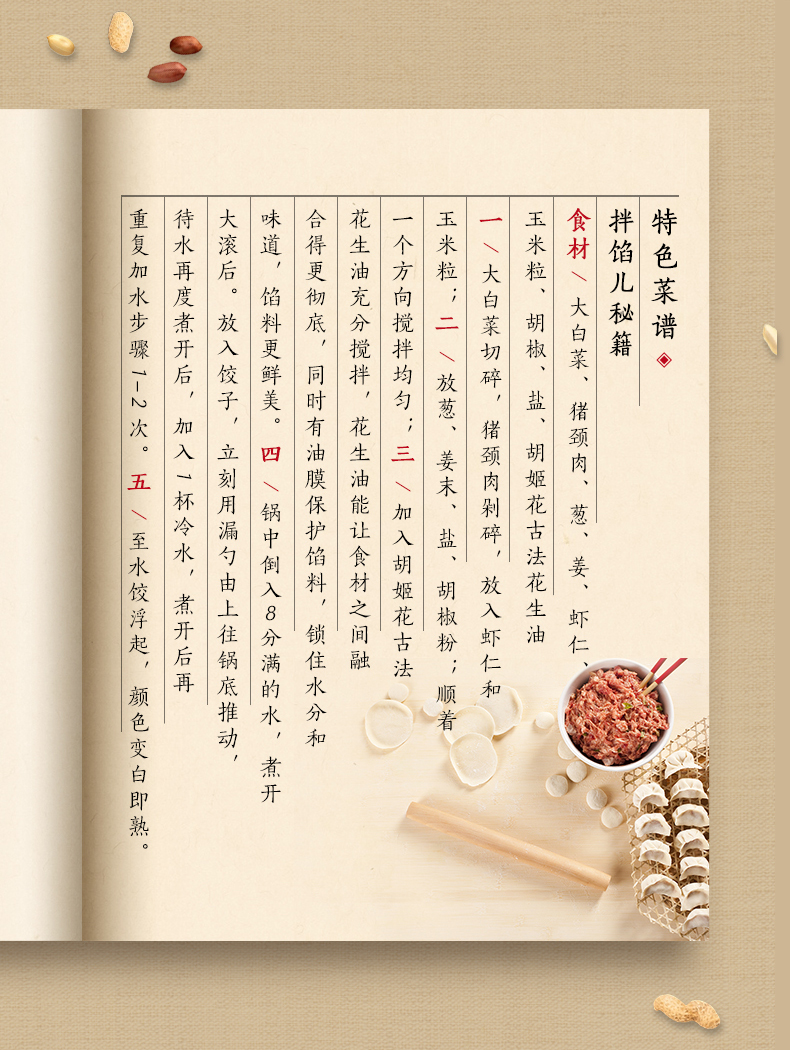 特色菜谱
拌馅儿秘籍
食材/大白菜、猪颈肉、葱、姜、虾仁、
玉米粒、胡椒、盐、胡姬花古法花生油
一/大白菜切碎，猪颈肉剁碎，放入虾仁和
玉米粒；二/放葱、姜末、盐、胡椒粉；顺着
一个方向搅拌均匀；三/加入胡姬花古法
花生油充分搅拌，花生油能让食材之间融
合得更彻底，同时有油膜保护馅料，锁住水分和
味道，馅料更鲜美。四/锅中倒入8分满的水，煮开
大滚后。放入饺子，立刻用漏勺由上往锅底推动，
待水再度煮开后，加入1杯冷水，煮开后再
重复加水步骤1-2次。五/至水饺浮起，颜色变白即熟。